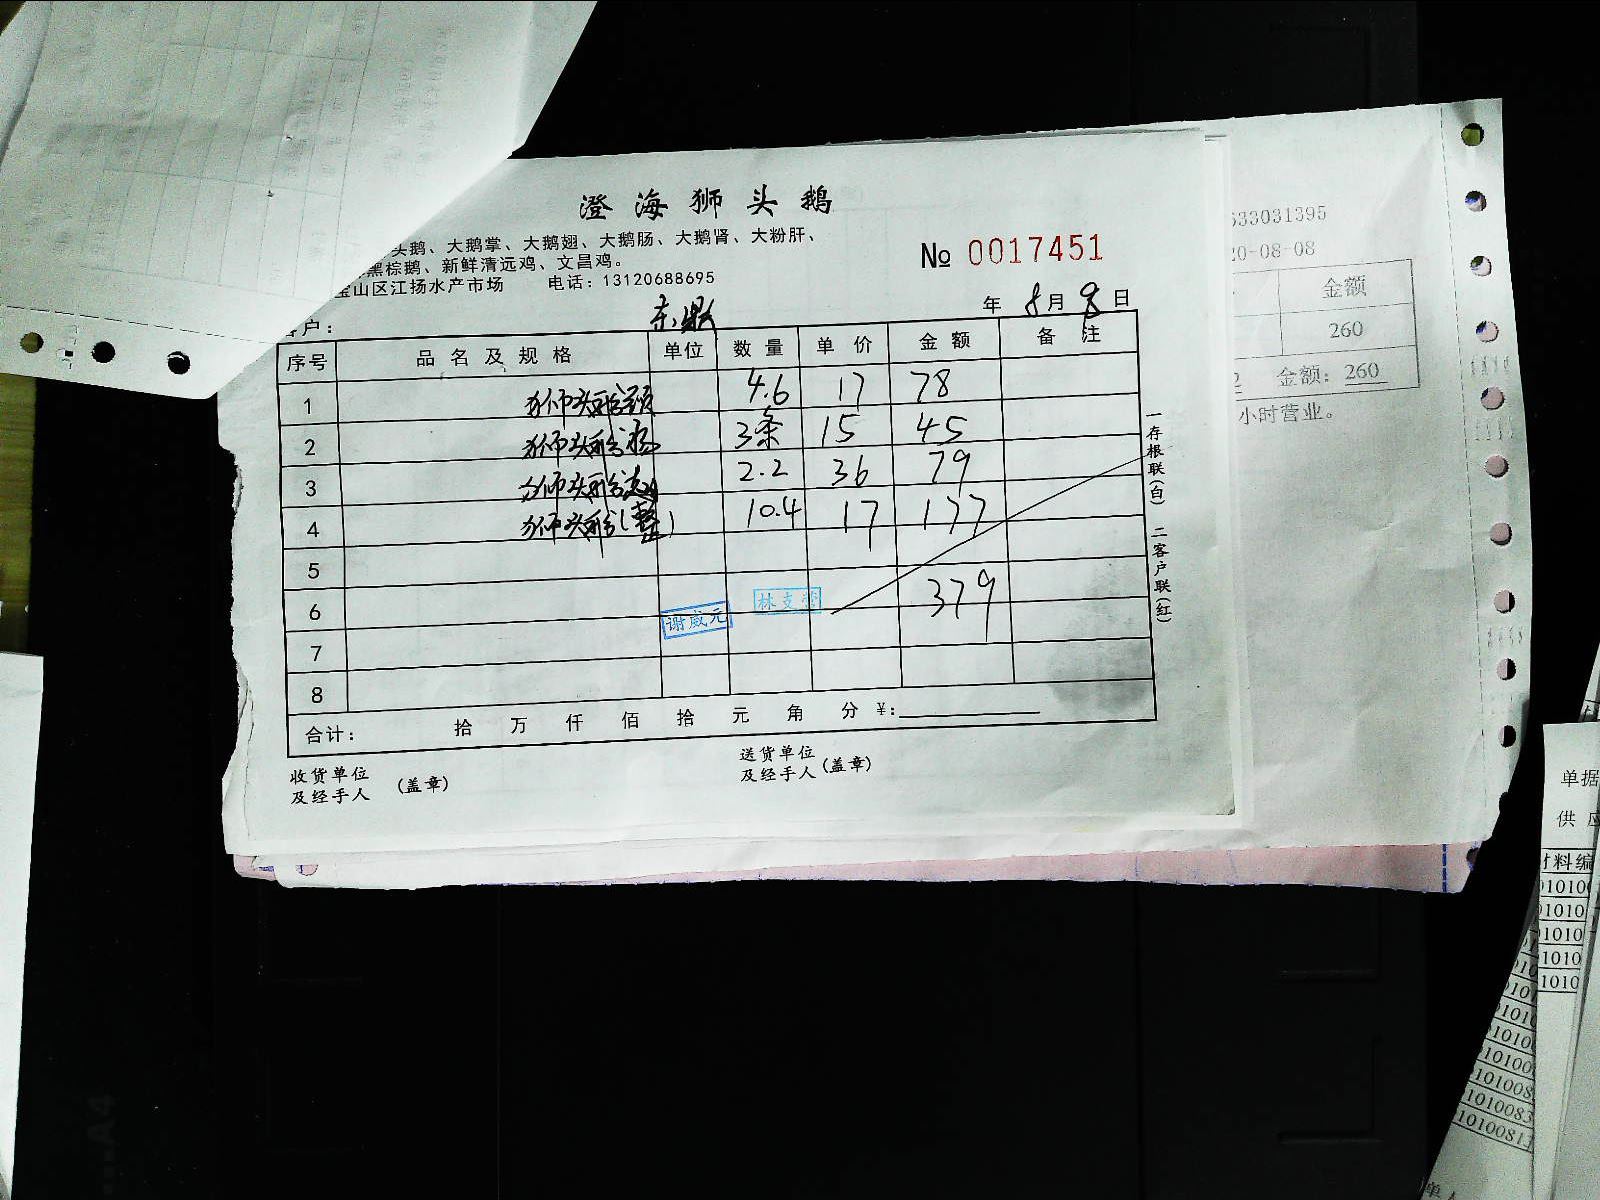 澄海狮头鹅
头鹅、大鹅掌、大鹅翅、大鹅肠、大鹅肾、大粉肝、
黑棕鹅、新鲜清远鸡、文昌鸡。
宝山区江扬水产市场 电话：13120688695
№ 0017451
客户： 东鼎
年 8月 8日
序号 品名及规格 单位 数量 单价 金额 备注
1 狮头鹅头 4.6 17 78
2 狮头鹅 3条 15 45
3 狮头鹅 2.2 36 79
4 狮头鹅(整) 10.4 17 177
5
6 379
7
8
谢威元
林支
合计： 拾 万 仟 佰 拾 元 角 分 ¥:
收货单位
及经手人 (盖章)
送货单位
及经手人 (盖章)
一存根联(白) 二客户联(红)
533031395
20-08-08
金额
260
金额: 260
小时营业。
单据
供应
材料编
01010
01010
01010
01010
01010
0101008
01010083
01010081
A4